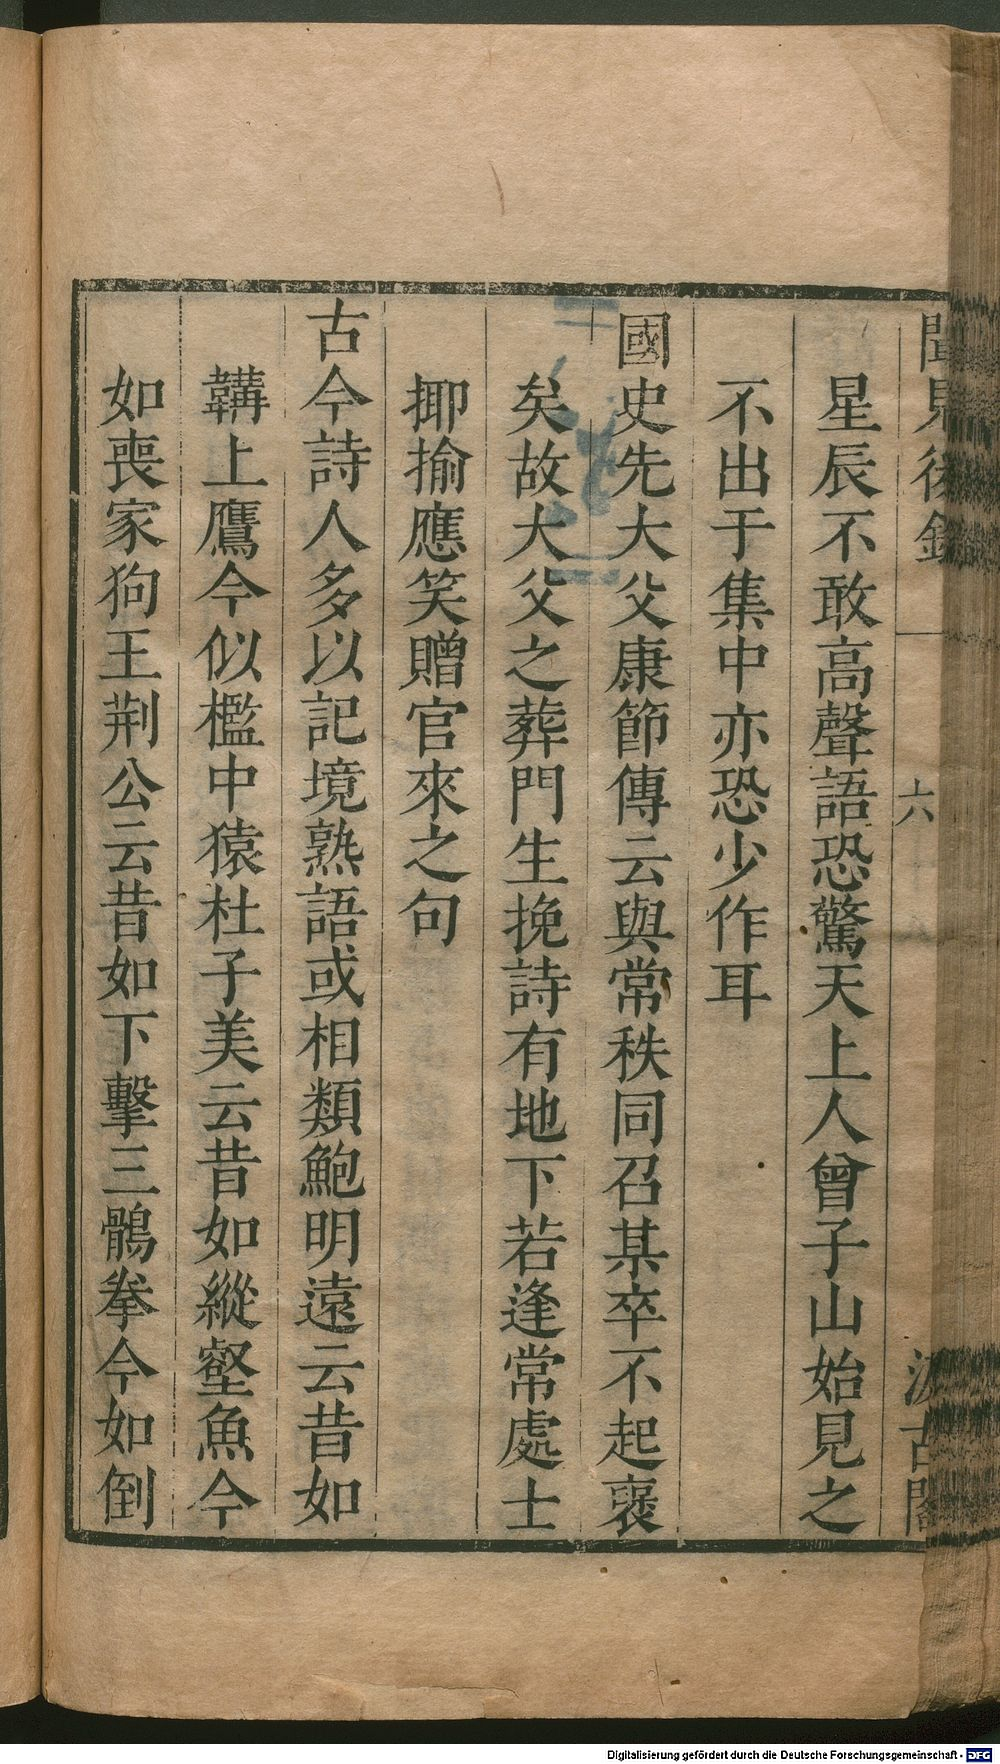 聞見後錄
六
汲古閣
星辰不敢高聲語恐驚天上人曾子山始見之
不出于集中亦恐少作耳
國史先大父康節傳云與常秩同召某卒不起褒
矣故大父之葬門生挽詩有地下若逢常處士
揶揄應笑贈官來之句
古今詩人多以記境熟語或相類鮑明遠云昔如
韝上鷹今似檻中猿杜子美云昔如縱壑魚今
如喪家狗王荆公云昔如下擊三鶻拳今如倒
Digitalisierung gefördert durch die Deutsche Forschungsgemeinschaft - DFG